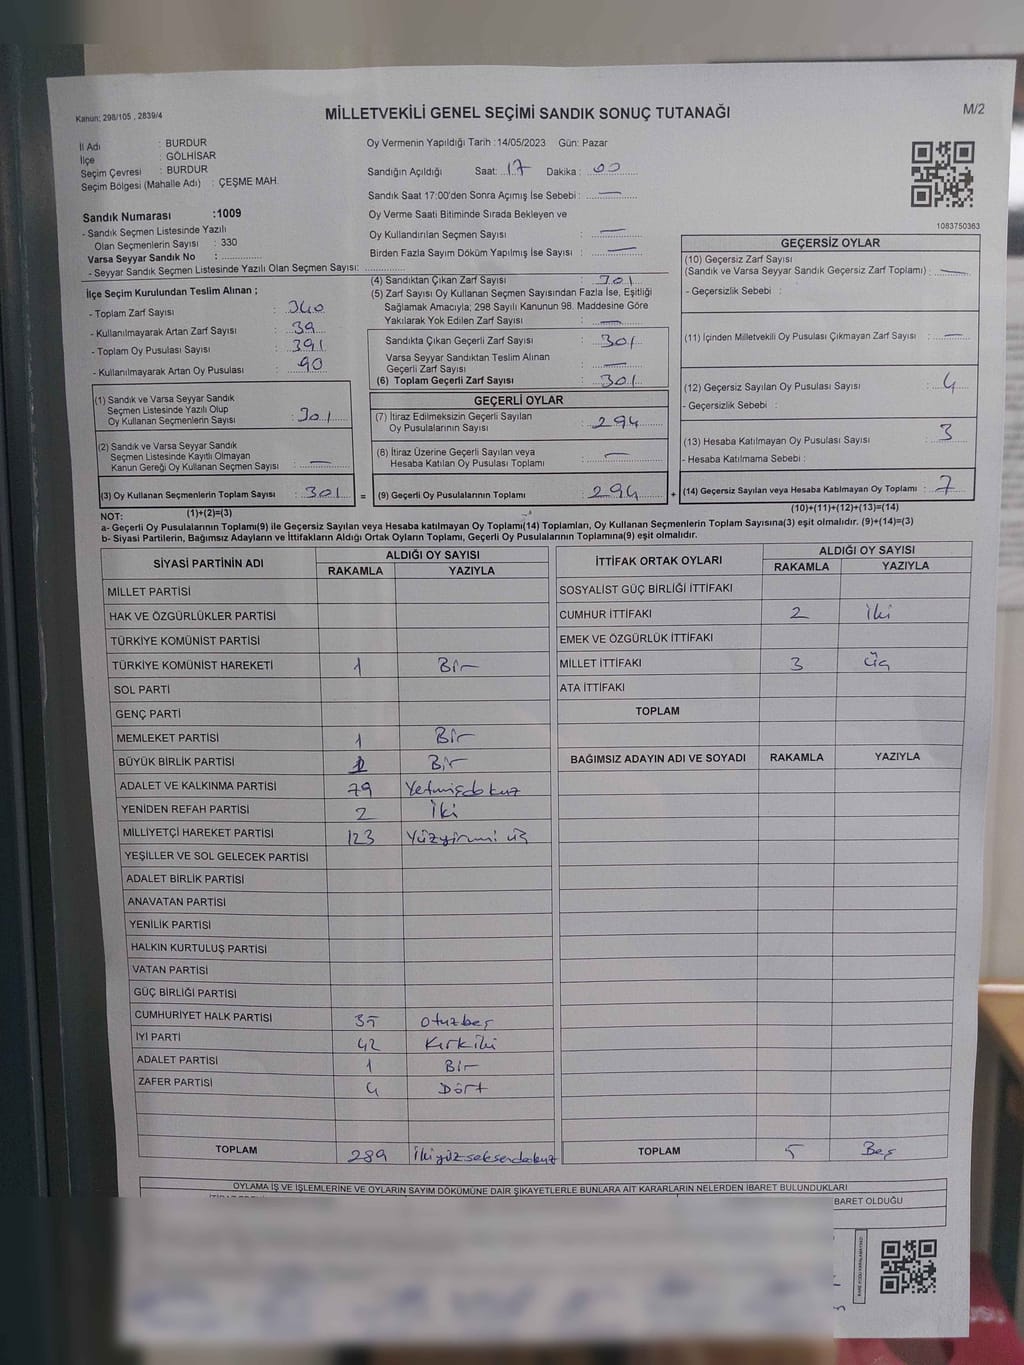 Kanun: 298/105 , 2839/4
MİLLETVEKİLİ GENEL SEÇİMİ SANDIK SONUÇ TUTANAĞI
M/2
İl Adı : BURDUR
İlçe : GÖLHİSAR
Seçim Çevresi : BURDUR
Seçim Bölgesi (Mahalle Adı) : ÇEŞME MAH.
Oy Vermenin Yapıldığı Tarih :14/05/2023 Gün: Pazar
Sandığın Açıldığı Saat: 17 Dakika : 00
Sandık Saat 17:00'den Sonra Açımış İse Sebebi : —
Oy Verme Saati Bitiminde Sırada Bekleyen ve
Oy Kullandırılan Seçmen Sayısı : —
Birden Fazla Sayım Döküm Yapılmış İse Sayısı : —
1083750363
Sandık Numarası :1009
- Sandık Seçmen Listesinde Yazılı
Olan Seçmenlerin Sayısı : 330
Varsa Seyyar Sandık No :
- Seyyar Sandık Seçmen Listesinde Yazılı Olan Seçmen Sayısı:
İlçe Seçim Kurulundan Teslim Alınan ;
- Toplam Zarf Sayısı : 340
- Kullanılmayarak Artan Zarf Sayısı : 39
- Toplam Oy Pusulası Sayısı : 391
- Kullanılmayarak Artan Oy Pusulası : 90
(1) Sandık ve Varsa Seyyar Sandık
Seçmen Listesinde Yazılı Olup
Oy Kullanan Seçmenlerin Sayısı : 301
(2) Sandık ve Varsa Seyyar Sandık
Seçmen Listesinde Kayıtlı Olmayan
Kanun Gereği Oy Kullanan Seçmen Sayısı : —
(3) Oy Kullanan Seçmenlerin Toplam Sayısı : 301 =
(1)+(2)=(3)
(4) Sandıktan Çıkan Zarf Sayısı : 301
(5) Zarf Sayısı Oy Kullanan Seçmen Sayısından Fazla İse, Eşitliği
Sağlamak Amacıyla; 298 Sayılı Kanunun 98. Maddesine Göre
Yakılarak Yok Edilen Zarf Sayısı : —
Sandıkta Çıkan Geçerli Zarf Sayısı : 301
Varsa Seyyar Sandıktan Teslim Alınan
Geçerli Zarf Sayısı : —
(6) Toplam Geçerli Zarf Sayısı : 301
GEÇERLİ OYLAR
(7) İtiraz Edilmeksizin Geçerli Sayılan
Oy Pusulalarının Sayısı : 294
(8) İtiraz Üzerine Geçerli Sayılan veya
Hesaba Katılan Oy Pusulası Toplamı : —
(9) Geçerli Oy Pusulalarının Toplamı : 294 +
GEÇERSİZ OYLAR
(10) Geçersiz Zarf Sayısı
(Sandık ve Varsa Seyyar Sandık Geçersiz Zarf Toplamı) : —
- Geçersizlik Sebebi :
(11) İçinden Milletvekili Oy Pusulası Çıkmayan Zarf Sayısı : —
(12) Geçersiz Sayılan Oy Pusulası Sayısı : 4
- Geçersizlik Sebebi :
(13) Hesaba Katılmayan Oy Pusulası Sayısı : 3
- Hesaba Katılmama Sebebi :
(14) Geçersiz Sayılan veya Hesaba Katılmayan Oy Toplamı : 7
(10)+(11)+(12)+(13)=(14)
NOT:
a- Geçerli Oy Pusulalarının Toplamı(9) ile Geçersiz Sayılan veya Hesaba katılmayan Oy Toplamı(14) Toplamları, Oy Kullanan Seçmenlerin Toplam Sayısına(3) eşit olmalıdır. (9)+(14)=(3)
b- Siyasi Partilerin, Bağımsız Adayların ve İttifakların Aldığı Ortak Oyların Toplamı, Geçerli Oy Pusulalarının Toplamına(9) eşit olmalıdır.
SİYASİ PARTİNİN ADI ALDIĞI OY SAYISI
RAKAMLA YAZIYLA
MİLLET PARTİSİ
HAK VE ÖZGÜRLÜKLER PARTİSİ
TÜRKİYE KOMÜNİST PARTİSİ
TÜRKİYE KOMÜNİST HAREKETİ 1 Bir
SOL PARTİ
GENÇ PARTİ
MEMLEKET PARTİSİ 1 Bir
BÜYÜK BİRLİK PARTİSİ 1 Bir
ADALET VE KALKINMA PARTİSİ 79 Yetmişdokuz
YENİDEN REFAH PARTİSİ 2 İki
MİLLİYETÇİ HAREKET PARTİSİ 123 Yüzyirmi üç
YEŞİLLER VE SOL GELECEK PARTİSİ
ADALET BİRLİK PARTİSİ
ANAVATAN PARTİSİ
YENİLİK PARTİSİ
HALKIN KURTULUŞ PARTİSİ
VATAN PARTİSİ
GÜÇ BİRLİĞİ PARTİSİ
CUMHURİYET HALK PARTİSİ 35 Otuzbeş
İYİ PARTİ 42 Kırkiki
ADALET PARTİSİ 1 Bir
ZAFER PARTİSİ 4 Dört
TOPLAM 289 İkiyüzseksendokuz
İTTİFAK ORTAK OYLARI ALDIĞI OY SAYISI
RAKAMLA YAZIYLA
SOSYALİST GÜÇ BİRLİĞİ İTTİFAKI
CUMHUR İTTİFAKI 2 İki
EMEK VE ÖZGÜRLÜK İTTİFAKI
MİLLET İTTİFAKI 3 Üç
ATA İTTİFAKI
TOPLAM
BAĞIMSIZ ADAYIN ADI VE SOYADI RAKAMLA YAZIYLA
TOPLAM 5 Beş
OYLAMA İŞ VE İŞLEMLERİNE VE OYLARIN SAYIM DÖKÜMÜNE DAİR ŞİKAYETLERLE BUNLARA AİT KARARLARIN NELERDEN İBARET BULUNDUKLARI
BARET OLDUĞU